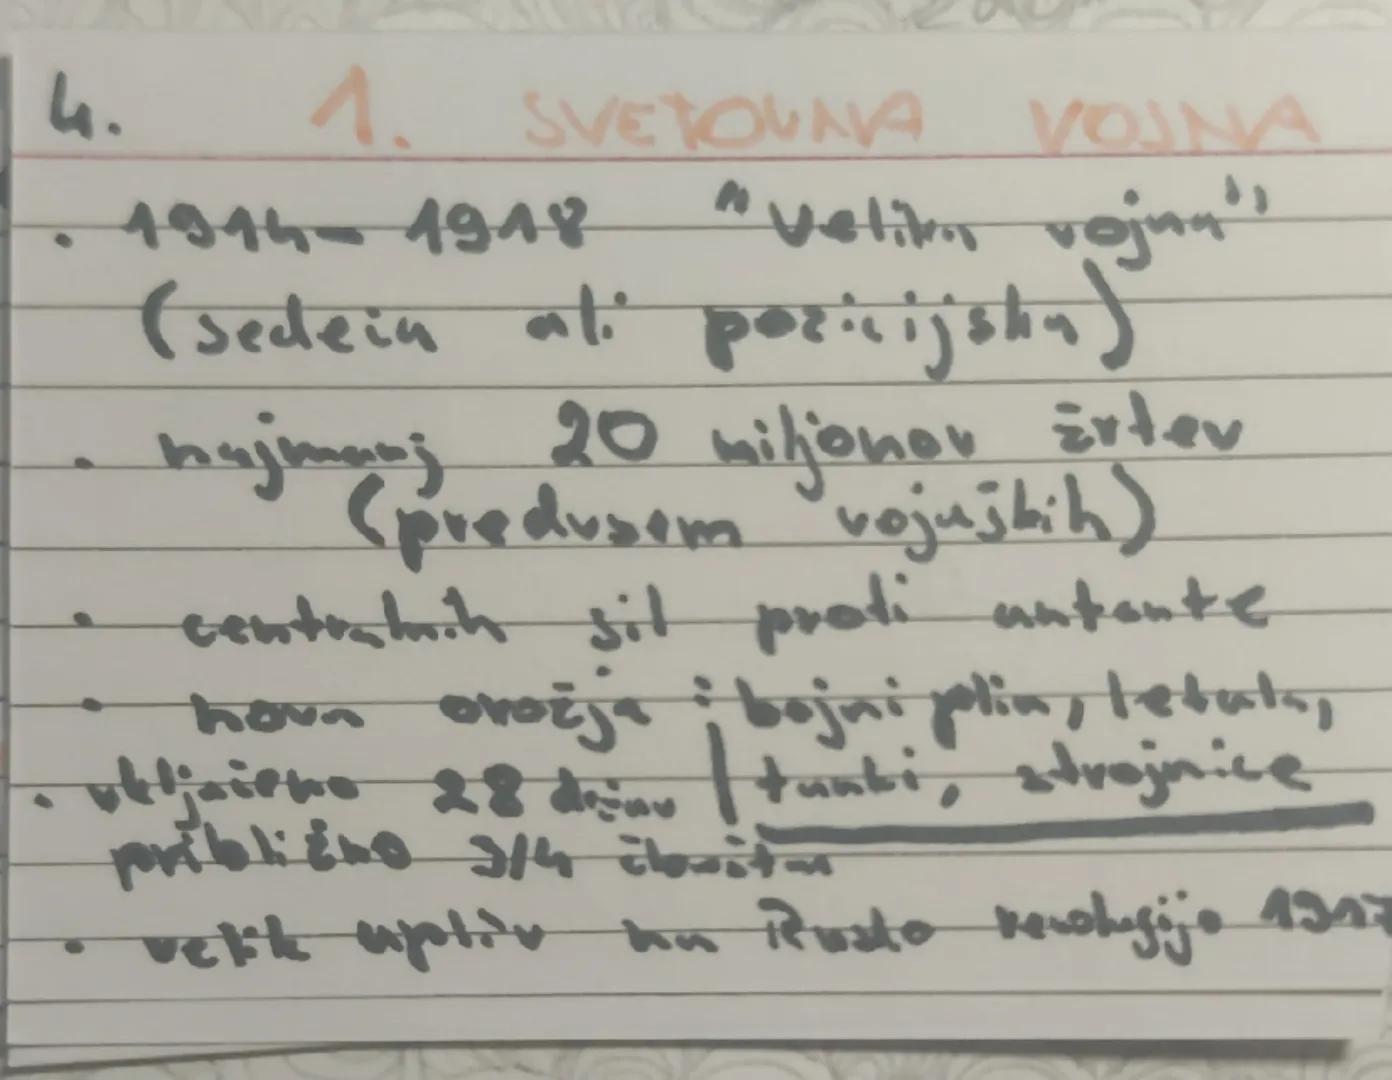 4. 1. SVETOVNA VOJNA
• 1914-1918 "Velika vojna"
(sedeča ali pozicijska)
• najmanj 20 miljonov žrtev
(predvsem vojaških)
• centralnih sil proti antante
• nova orožja: bojni plin, letala,
tanki, strojnice
• vključeno 28 držav
približno 3/4 človištva
• velik upliv na Rusko revolugijo 1917